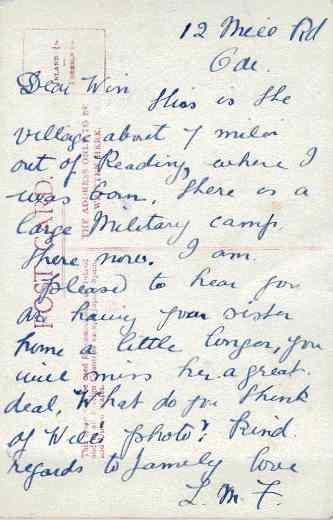 12 Mill Rd
Cae.
Dear Win
this is the
village about 7 miles
out of Reading, where I
was born, there is a
large Military camp
there now. I am
pleased to hear you
are having your sister
home a little longer, you
will miss her a great
deal, What do you think
of Wills photo? Kind
regards to family love
L. M. F.
POST CARD.
THE ADDRESS ONLY TO BE
WRITTEN HERE.
INLAND ½